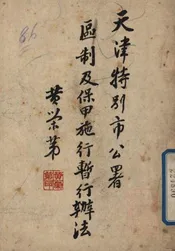 天津特別市公署
區制及保甲施行暫行辦法
黄荣第
86